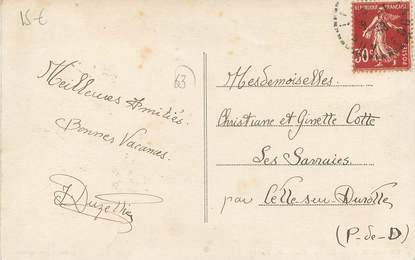 15 €
RÉPUBLIQUE FRANÇAISE
30c
POSTES
63
Meilleures Amitiés.
Bonnes Vacances.
Mesdemoiselles.
Christiane et Ginette Cotte
Les Sarraies.
par Celle-sur-Durolle
(P-de-D)